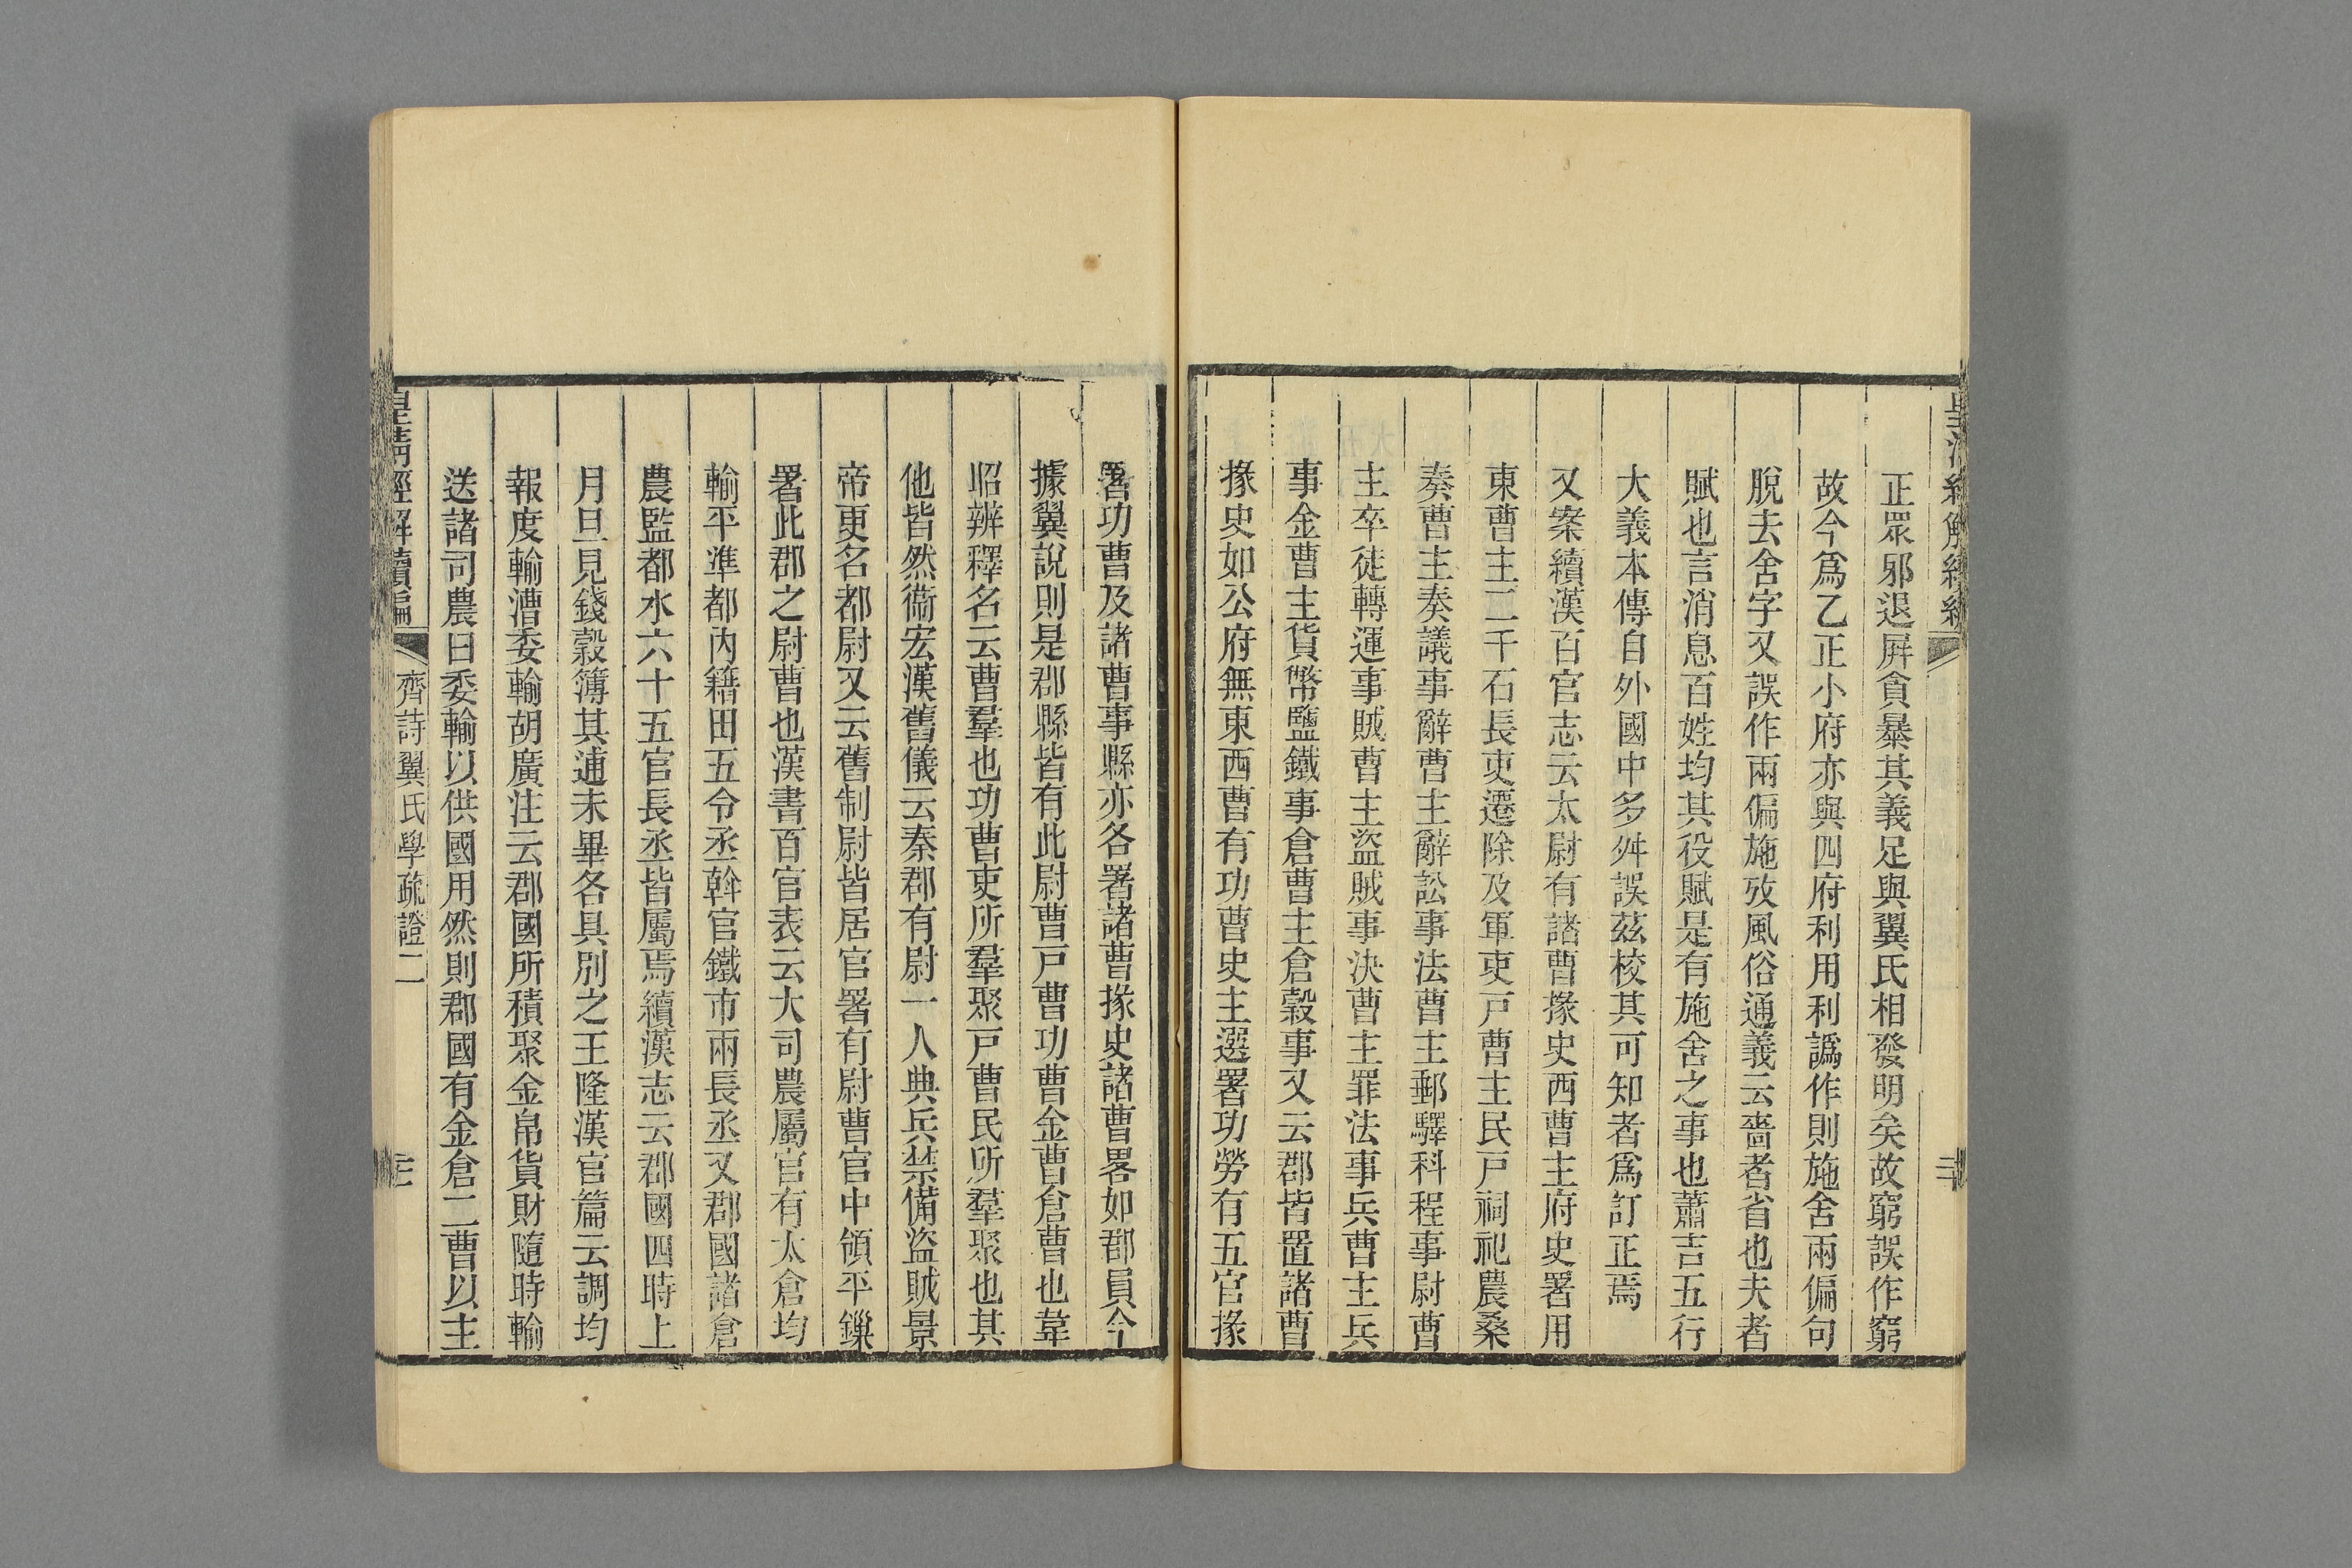 正眾邪退屏貪暴其義足與翼氏相發明矣故窮誤作窮
故今爲乙正小府亦與四府利用利譌作則施舍兩偏句
脫去舍字又誤作兩偏施攷風俗通義云嗇者省也夫者
賦也言消息百姓均其役賦是有施舍之事也蕭吉五行
大義本傳自外國中多舛誤茲校其可知者爲訂正焉
又案續漢百官志云太尉有諸曹掾史西曹主府史署用
東曹主二千石長吏遷除及軍吏戸曹主民戸祠祀農桑
奏曹主奏議事辭曹主辭訟事法曹主郵驛科程事尉曹
主卒徒轉運事賊曹主盜賊事決曹主罪法事兵曹主兵
事金曹主貨幣鹽鐵事倉曹主倉穀事又云郡皆置諸曹
掾史如公府無東西曹有功曹史主選署功勞有五官掾
署功曹及諸曹事縣亦各署諸曹掾史諸曹畧如郡員今
據翼說則是郡縣皆有此尉曹戸曹功曹金曹倉曹也韋
昭辨釋名云曹羣也功曹吏所羣聚戸曹民所羣聚也其
他皆然衞宏漢舊儀云秦郡有尉一人典兵禁備盜賊景
帝更名都尉又云舊制尉皆居官署有尉曹官中領平鏁
署此郡之尉曹也漢書百官表云大司農屬官有太倉均
輸平準都內籍田五令丞斡官鐵市兩長丞又郡國諸倉
農監都水六十五官長丞皆屬焉續漢志云郡國四時上
月旦見錢穀簿其逋未畢各具別之王隆漢官篇云調均
報度輸漕委輸胡廣注云郡國所積聚金帛貨財隨時輸
送諸司農曰委輸以供國用然則郡國有金倉二曹以主
皇清經解續編
齊詩翼氏學疏證二